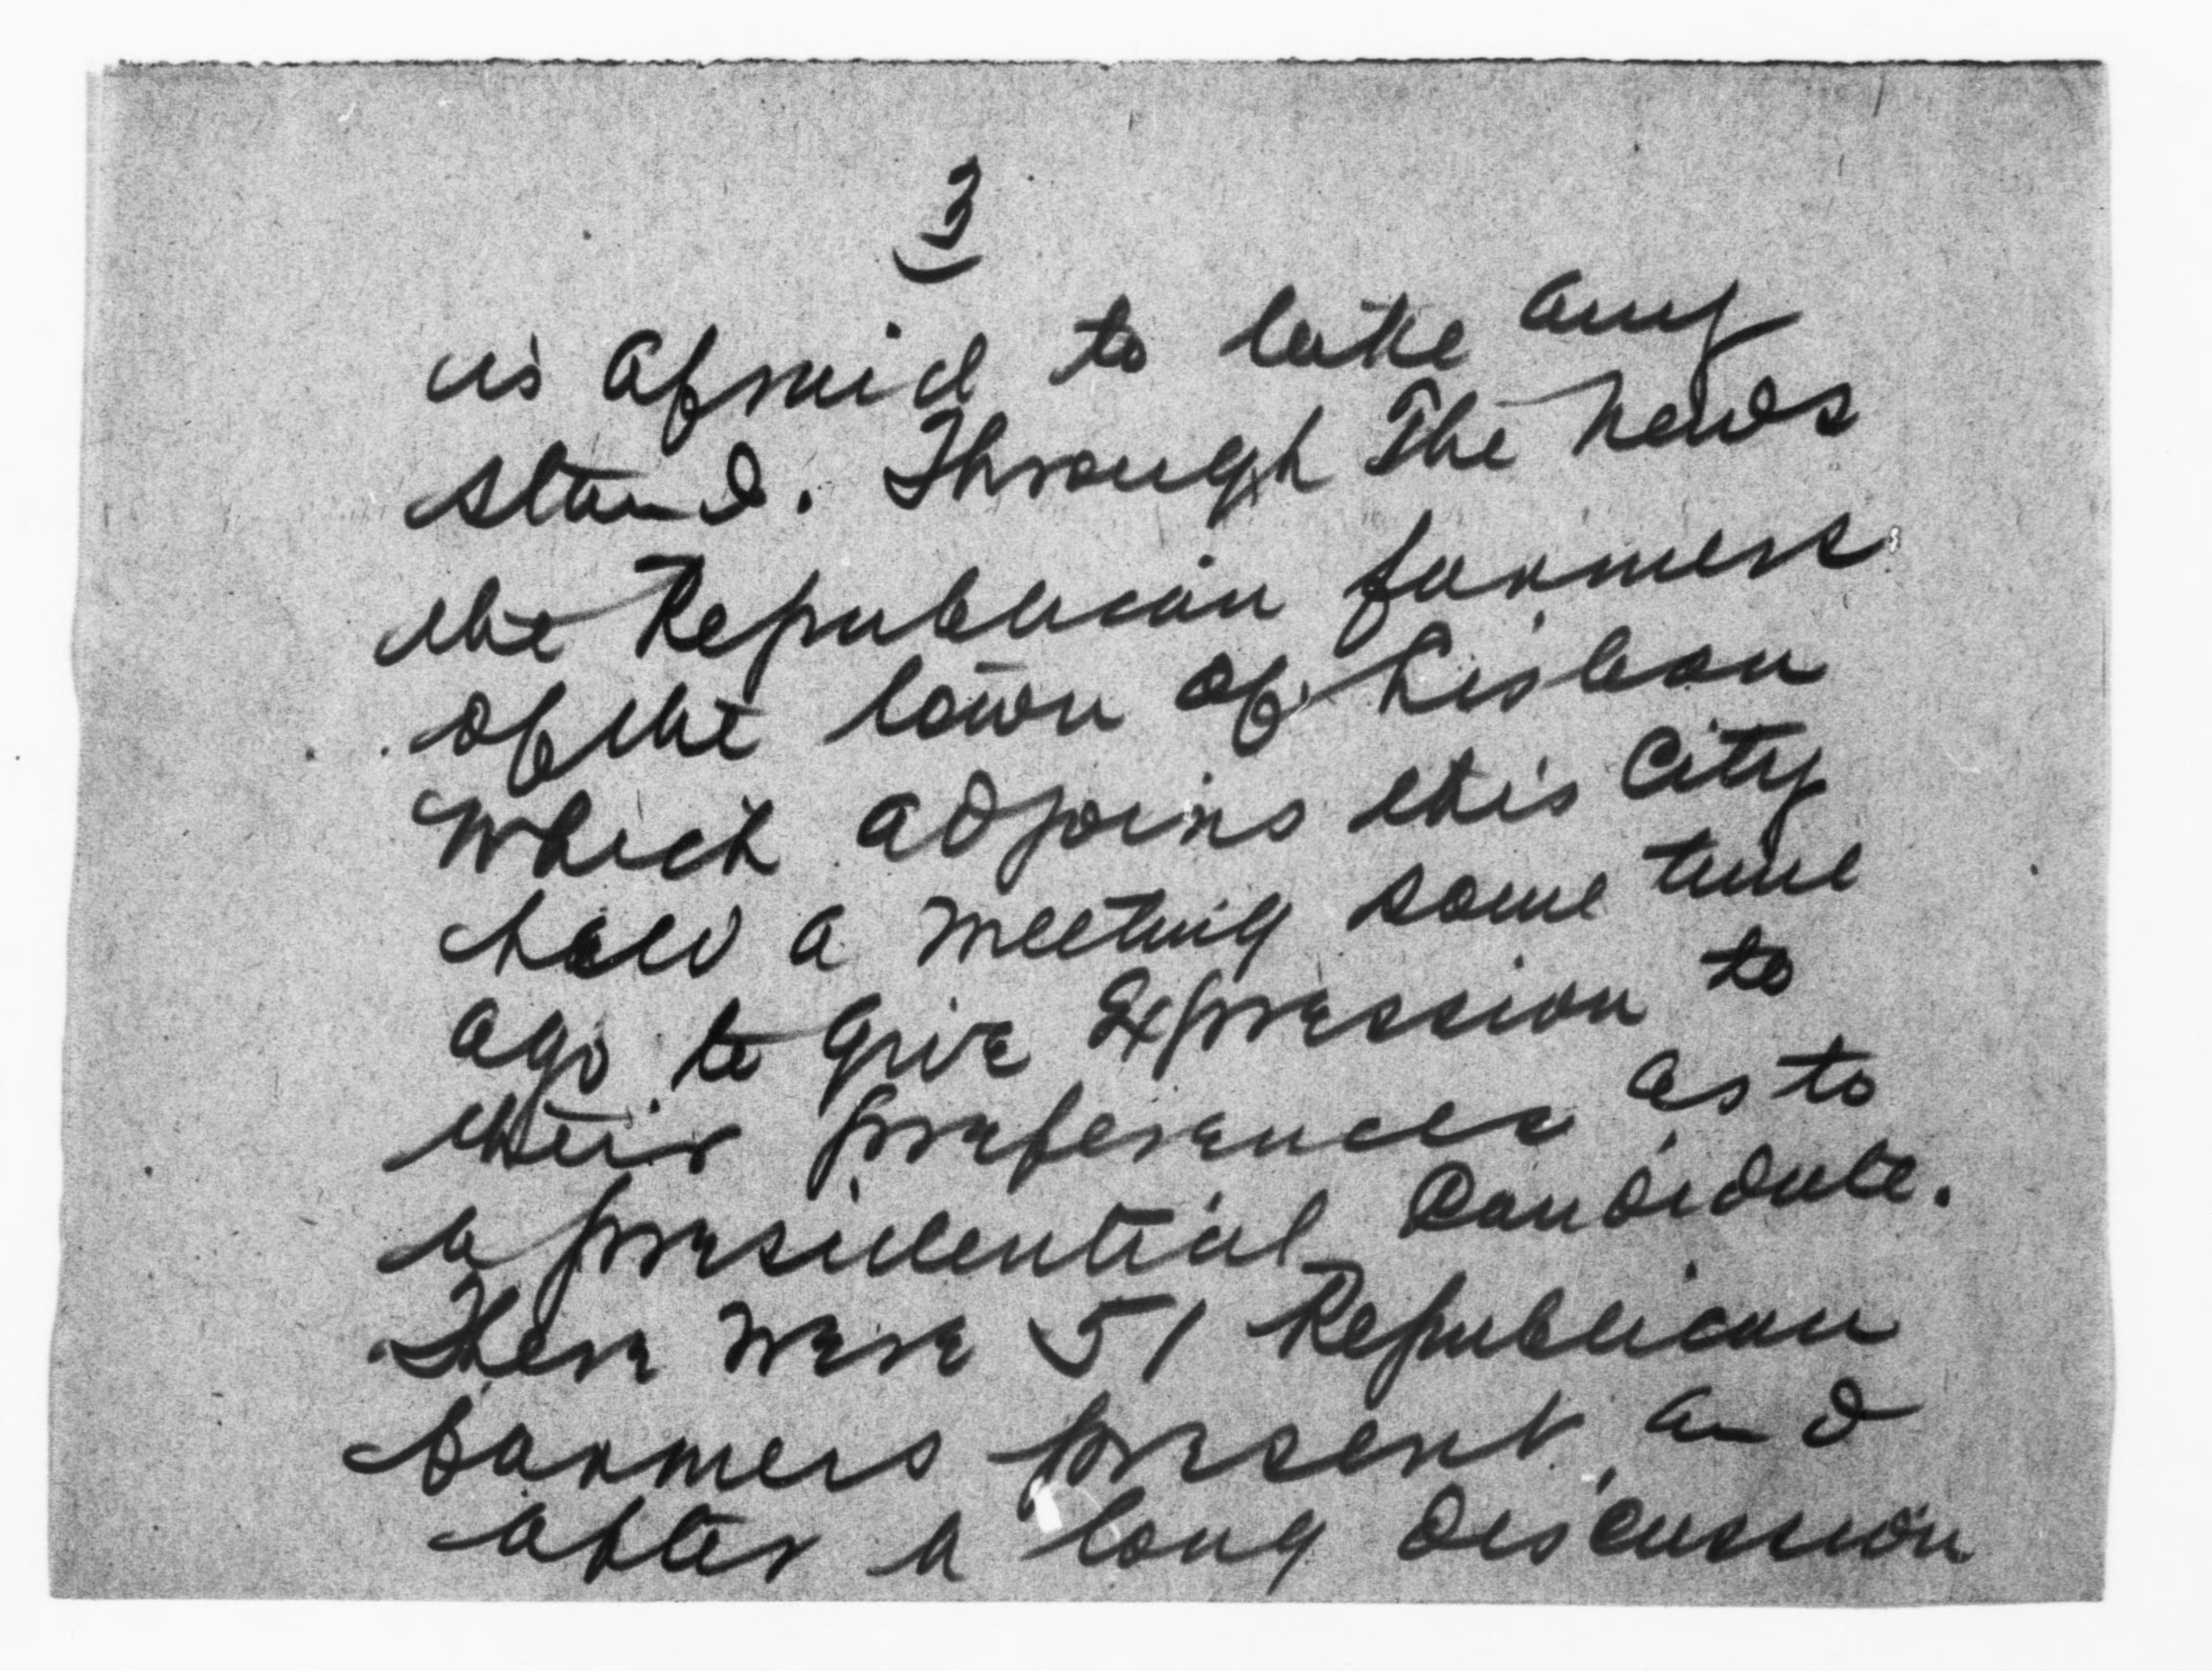 3
is afraid to take any
stand. Through The News
the Republican farmers
of the town of Lisbon
which adjoins this City
held a meeting some time
ago to give Expression to
their preferences as to
a presidential Candidate.
There were 51 Republican
farmers present, and
after a long discussion